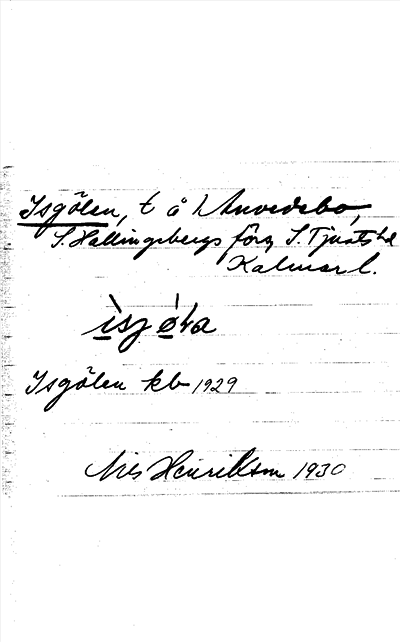 Isgölen, t å Anvedebo,
S. Hallingebergs förs, S. Tjusts hd
Kalmar l.
Isgölen kb 1929
Nils Henriksson 1930